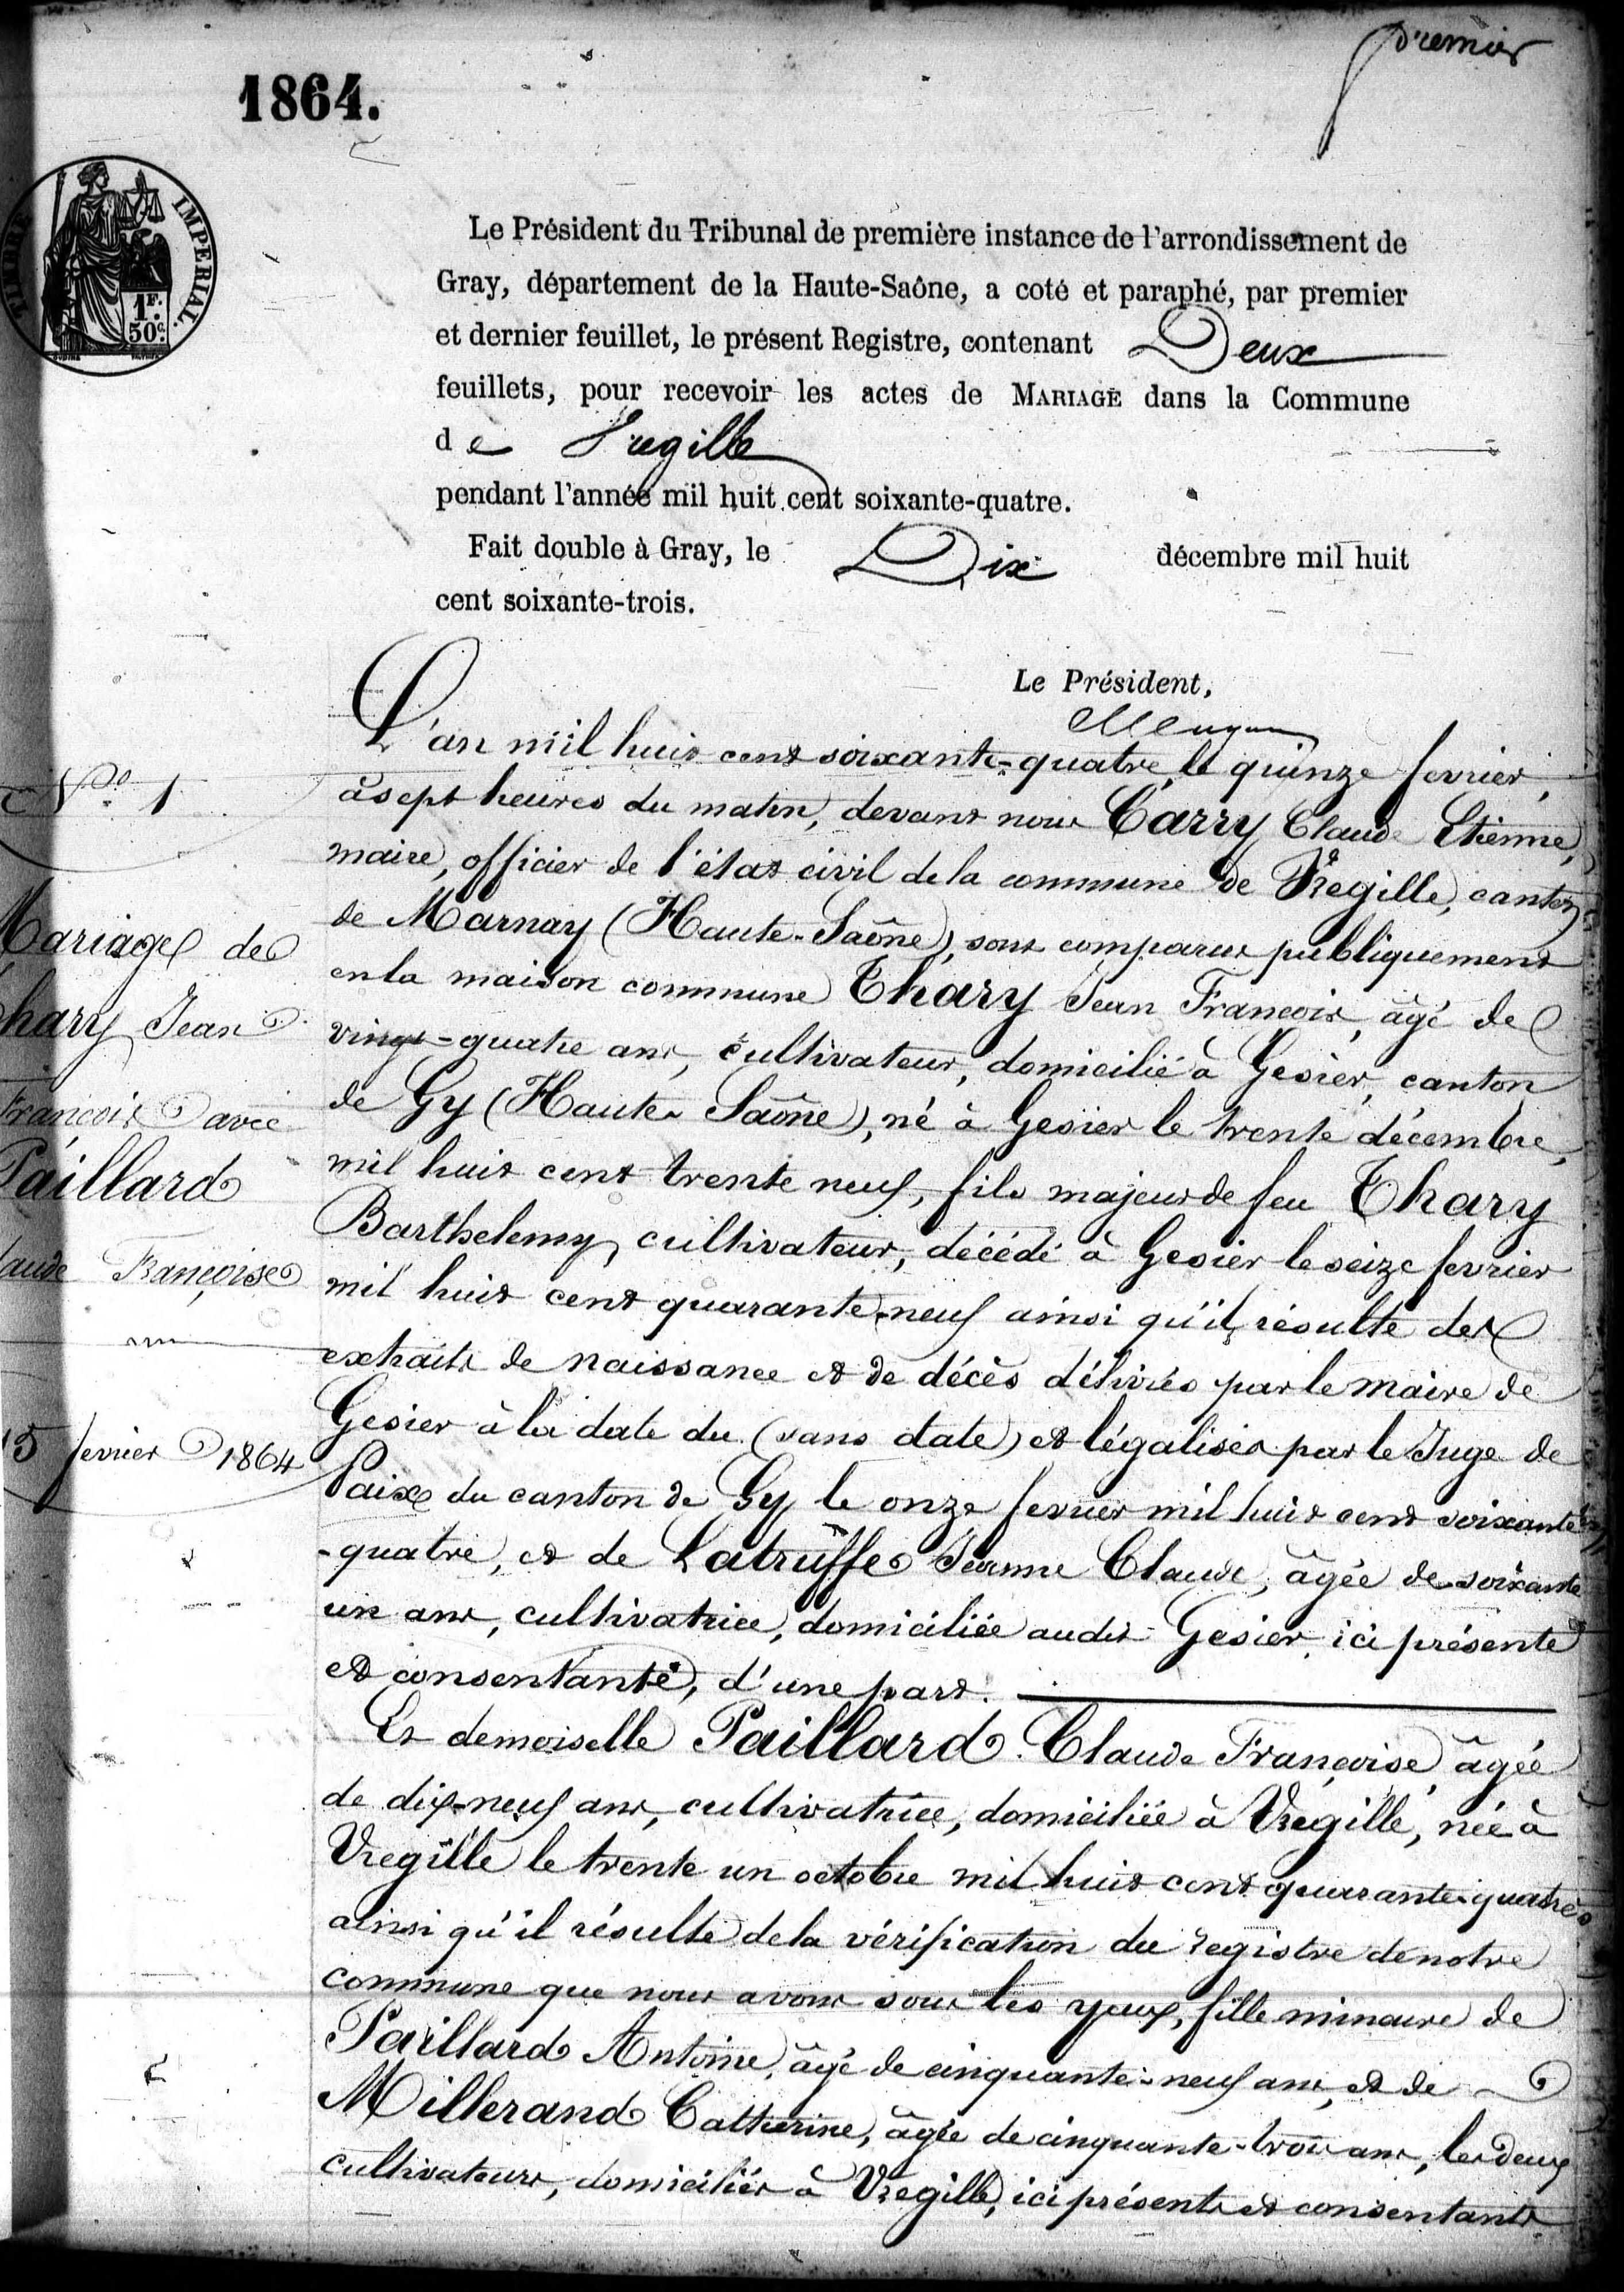 premier
1864.
TIMBRE IMPERIAL.
1F.
50c.
Le Président du Tribunal de première instance de l'arrondissement de
Gray, département de la Haute-Saône, a coté et paraphé, par premier
et dernier feuillet, le présent Registre, contenant Deux
feuillets, pour recevoir les actes de MARIAGE dans la Commune
de Vregille
pendant l'année mil huit cent soixante-quatre.
Fait double à Gray, le Dix décembre mil huit
cent soixante-trois.
Le Président,
No. 1
Mariage de
Thary Jean
François avec
Paillard
Claude Françoise
15 fevrier 1864
L'an mil huit cent soixante-quatre, le quinze fevrier,
à sept heures du matin, devant nous Carry Claude Etienne,
maire, officier de l'état civil de la commune de Vregille, canton
de Marnay (Haute-Saône), sont comparus publiquement
en la maison commune Thary Jean François, âgé de
vingt-quatre ans, cultivateur, domicilié à Gesier, canton
de Gy (Haute-Saône), né à Gesier le trente décembre,
mil huit cent trente neuf, fils majeur de feu Thary
Barthelemy, cultivateur, décédé à Gesier le seize fevrier
mil huit cent quarante-neuf ainsi qu'il résulte des
extraits de naissance et de décès délivrés par le maire de
Gesier à la date du (sans date) et légalisés par le Juge de
Paix du canton de Gy le onze fevrier mil huit cent soixante
-quatre, et de Latruffe Jeanne Claude, âgée de soixante
un ans, cultivatrice, domiciliée audit Gesier, ici présente
et consentante, d'une part.
Et demoiselle Paillard Claude Françoise, âgée
de dix-neuf ans, cultivatrice, domiciliée à Vregille, née à
Vregille le trente un octobre mil huit cent quarante-quatre
ainsi qu'il résulte de la vérification du registre de notre
commune que nous avons sous les yeux, fille mineure de
Paillard Antoine, âgé de cinquante-neuf ans, et de
Millerand Catherine, âgée de cinquante-trois ans, les deux
cultivateurs, domiciliés à Vregille, ici présents et consentants